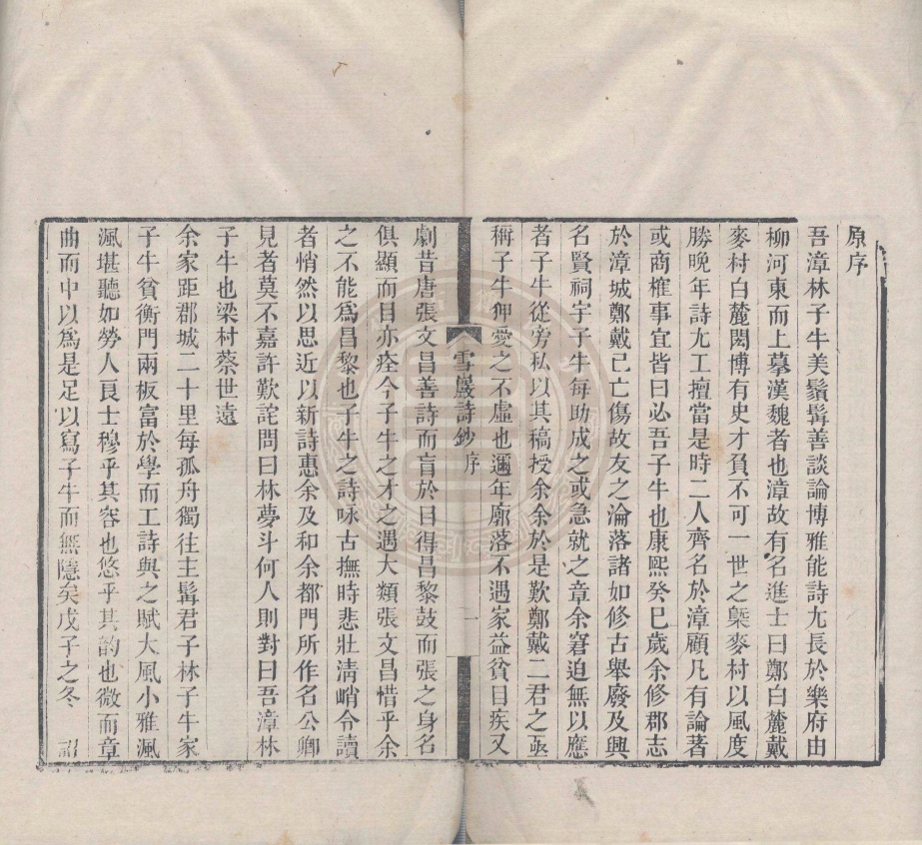 原序
吾漳林子牛美鬚髯善談論博雅能詩尤長於樂府由
柳河東而上摹漢魏者也漳故有名進士曰鄭白麓戴
麥村白麓閎博有史才負不可一世之槩麥村以風度
勝晚年詩尤工擅當是時二人齊名於漳顧凡有論著
或商榷事宜皆曰必吾子牛也康熙癸巳歲余修郡志
於漳城鄭戴已亡傷故友之淪落諸如修古舉廢及興
名賢祠宇子牛每助成之或急就之章余窘迫無以應
者子牛從旁私以其稿授余余於是歎鄭戴二君之亟
稱子牛知愛之不虛也邇年廓落不遇家益貧目疾又
雪巖詩鈔 序 一
劇昔唐張文昌善詩而盲於目得昌黎鼓而張之身名
俱顯而目亦痊今子牛之才之遇大類張文昌惜乎余
之不能爲昌黎也子牛之詩咏古撫時悲壯淸峭令讀
者悄然以思近以新詩惠余及和余都門所作名公卿
見者莫不嘉許歎詫問曰林夢斗何人則對曰吾漳林
子牛也梁村蔡世遠
余家距郡城二十里每孤舟獨往主髯君子林子牛家
子牛貧衡門兩板富於學而工詩與之賦大風小雅渢
渢堪聽如勞人良士穆乎其容也悠乎其韵也微而章
曲而中以爲是足以寫子牛而無隱矣戊子之冬 詔